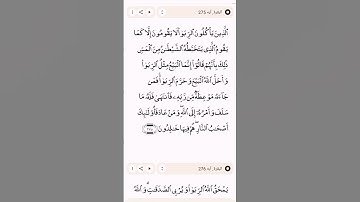 البقرة . آية 275
ٱلَّذِينَ يَأْكُلُونَ ٱلرِّبَوٰا۟ لَا يَقُومُونَ إِلَّا كَمَا
يَقُومُ ٱلَّذِى يَتَخَبَّطُهُ ٱلشَّيْطَٰنُ مِنَ ٱلْمَسِّ
ذَٰلِكَ بِأَنَّهُمْ قَالُوٓا۟ إِنَّمَا ٱلْبَيْعُ مِثْلُ ٱلرِّبَوٰا۟
وَأَحَلَّ ٱللَّهُ ٱلْبَيْعَ وَحَرَّمَ ٱلرِّبَوٰا۟ فَمَن
جَآءَهُۥ مَوْعِظَةٌ مِّن رَّبِّهِۦ فَٱنتَهَىٰ فَلَهُۥ مَا
سَلَفَ وَأَمْرُهُۥٓ إِلَى ٱللَّهِ وَمَنْ عَادَ فَأُو۟لَٰٓئِكَ
أَصْحَٰبُ ٱلنَّارِ هُمْ فِيهَا خَٰلِدُونَ ٢٧٥
البقرة . آية 276
يَمْحَقُ ٱللَّهُ ٱلرِّبَوٰا۟ وَيُرْبِى ٱلصَّدَقَٰتِ وَٱللَّهُ